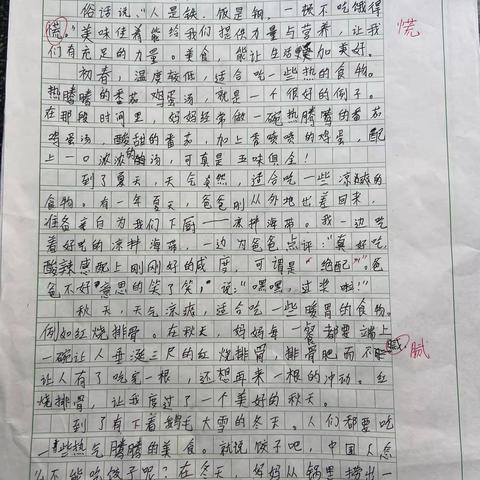 俗话说："人是铁,饭是钢,一顿不吃饿得
慌。"美味佳肴能给我们提供力量与营养,让我 慌
们有充足的力量。美食,能让生活更加美好。
初春,温度较低,适合吃一些热的食物。
热腾腾的番茄鸡蛋汤,就是一个很好的例子。
在那段时间里,妈妈经常做一碗热腾腾的番茄
鸡蛋汤,酸甜的番茄,加上香喷喷的鸡蛋,配
上一口浓浓的汤,可真是五味俱全!
到了夏天,天气炎热,适合吃一些凉爽的
食物。有一年夏天,爸爸刚从外地出差回来,
准备亲自为我们下厨——凉拌海带。我一边吃
着好吃的凉拌海带,一边为爸爸点评:"真好吃,
酸辣感配上刚刚好的咸度,可谓是"绝配"!"爸
爸不好意思的笑了笑,说:"嘿嘿,过奖啦!"
秋天,天气凉爽,适合吃一些暖胃的食物。
例如红烧排骨。在秋天,妈妈每一餐都要端上
一碗让人垂涎三尺的红烧排骨,排骨肥而不腻 腻
让人有了吃完一根,还想再来一根的冲动。红
烧排骨,让我度过了一个美好的秋天。
到了有下着鹅毛大雪的冬天。人们都要吃
一些热气腾腾的美食。就说饺子吧,中国人怎
么不能吃饺子呢?在冬天,妈妈从锅里捞出一